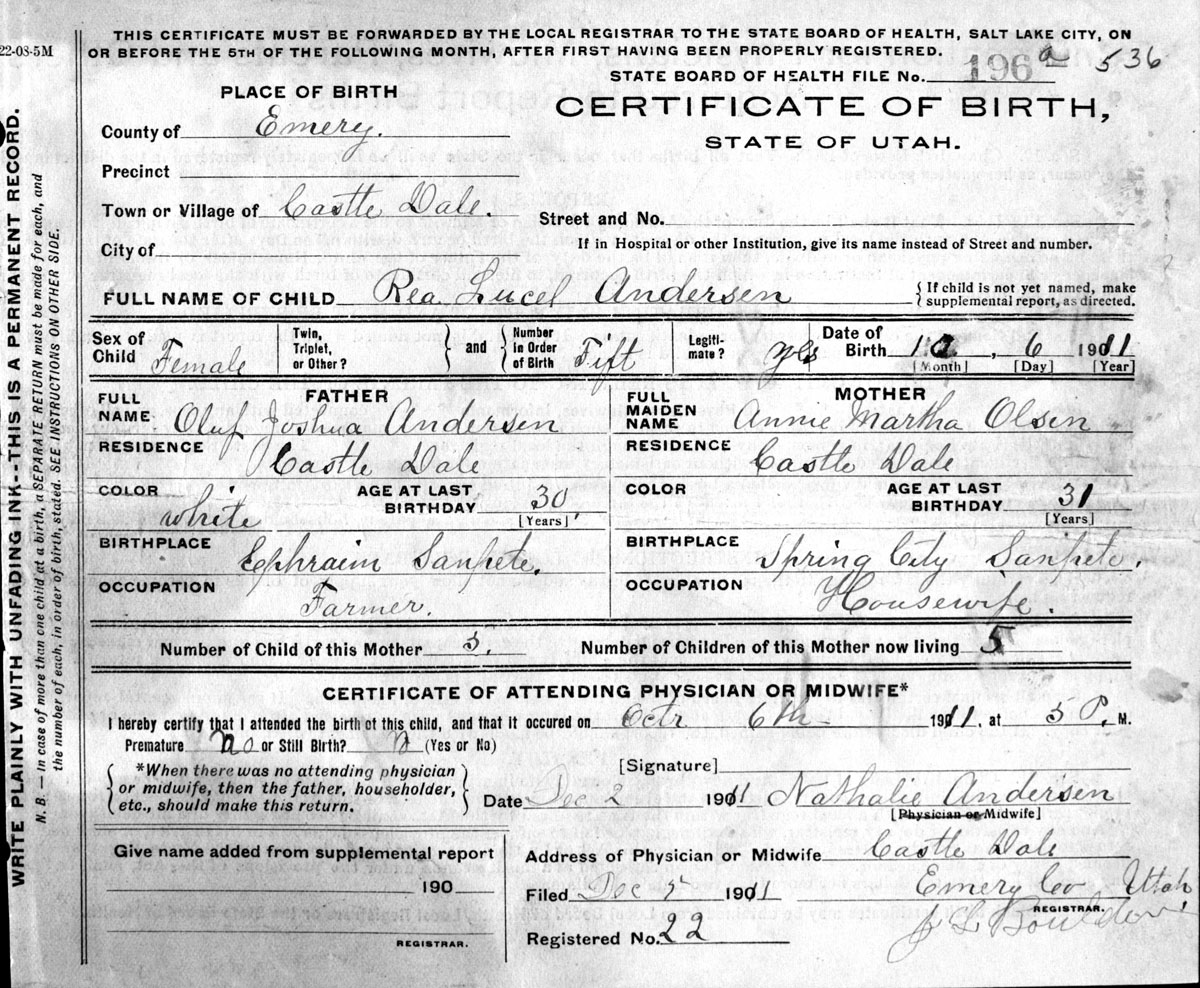 22-08-5M
THIS CERTIFICATE MUST BE FORWARDED BY THE LOCAL REGISTRAR TO THE STATE BOARD OF HEALTH, SALT LAKE CITY, ON
OR BEFORE THE 5TH OF THE FOLLOWING MONTH, AFTER FIRST HAVING BEEN PROPERLY REGISTERED.
STATE BOARD OF HEALTH FILE No. 196 a 536
PLACE OF BIRTH
CERTIFICATE OF BIRTH,
STATE OF UTAH.
County of Emery.
Precinct
Town or Village of Castle Dale.
Street and No.
City of
If in Hospital or other Institution, give its name instead of Street and number.
FULL NAME OF CHILD Rea Lucel Andersen { If child is not yet named, make
supplemental report, as directed.
Sex of Child Female Twin, Triplet, or Other? } and { Number in Order of Birth Fift Legiti-mate? yes Date of Birth 10, 6 1911
[Month] [Day] [Year]
FATHER MOTHER
FULL NAME Oluf Joshua Andersen FULL MAIDEN NAME Annie Martha Olsen
RESIDENCE Castle Dale RESIDENCE Castle Dale
COLOR white AGE AT LAST BIRTHDAY 30 [Years] COLOR AGE AT LAST BIRTHDAY 31 [Years]
BIRTHPLACE Ephraim Sanpete. BIRTHPLACE Spring City Sanpete.
OCCUPATION Farmer. OCCUPATION Housewife.
Number of Child of this Mother 5. Number of Children of this Mother now living 5
CERTIFICATE OF ATTENDING PHYSICIAN OR MIDWIFE*
I hereby certify that I attended the birth of this child, and that it occured on Octr 6th 1911, at 5 P. M.
Premature no or Still Birth? N (Yes or No)
{ *When there was no attending physician
or midwife, then the father, householder,
etc., should make this return. }
[Signature]
Date Dec 2 1911 Nathalie Andersen
[Physician or Midwife]
Give name added from supplemental report
190
REGISTRAR.
Address of Physician or Midwife Castle Dale
Filed Dec 5 1911 Emery Co Utah
REGISTRAR.
Registered No. 22
WRITE PLAINLY WITH UNFADING INK--THIS IS A PERMANENT RECORD.
N. B. — In case of more than one child at a birth, a SEPARATE RETURN must be made for each, and
the number of each, in order of birth, stated. SEE INSTRUCTIONS ON OTHER SIDE.